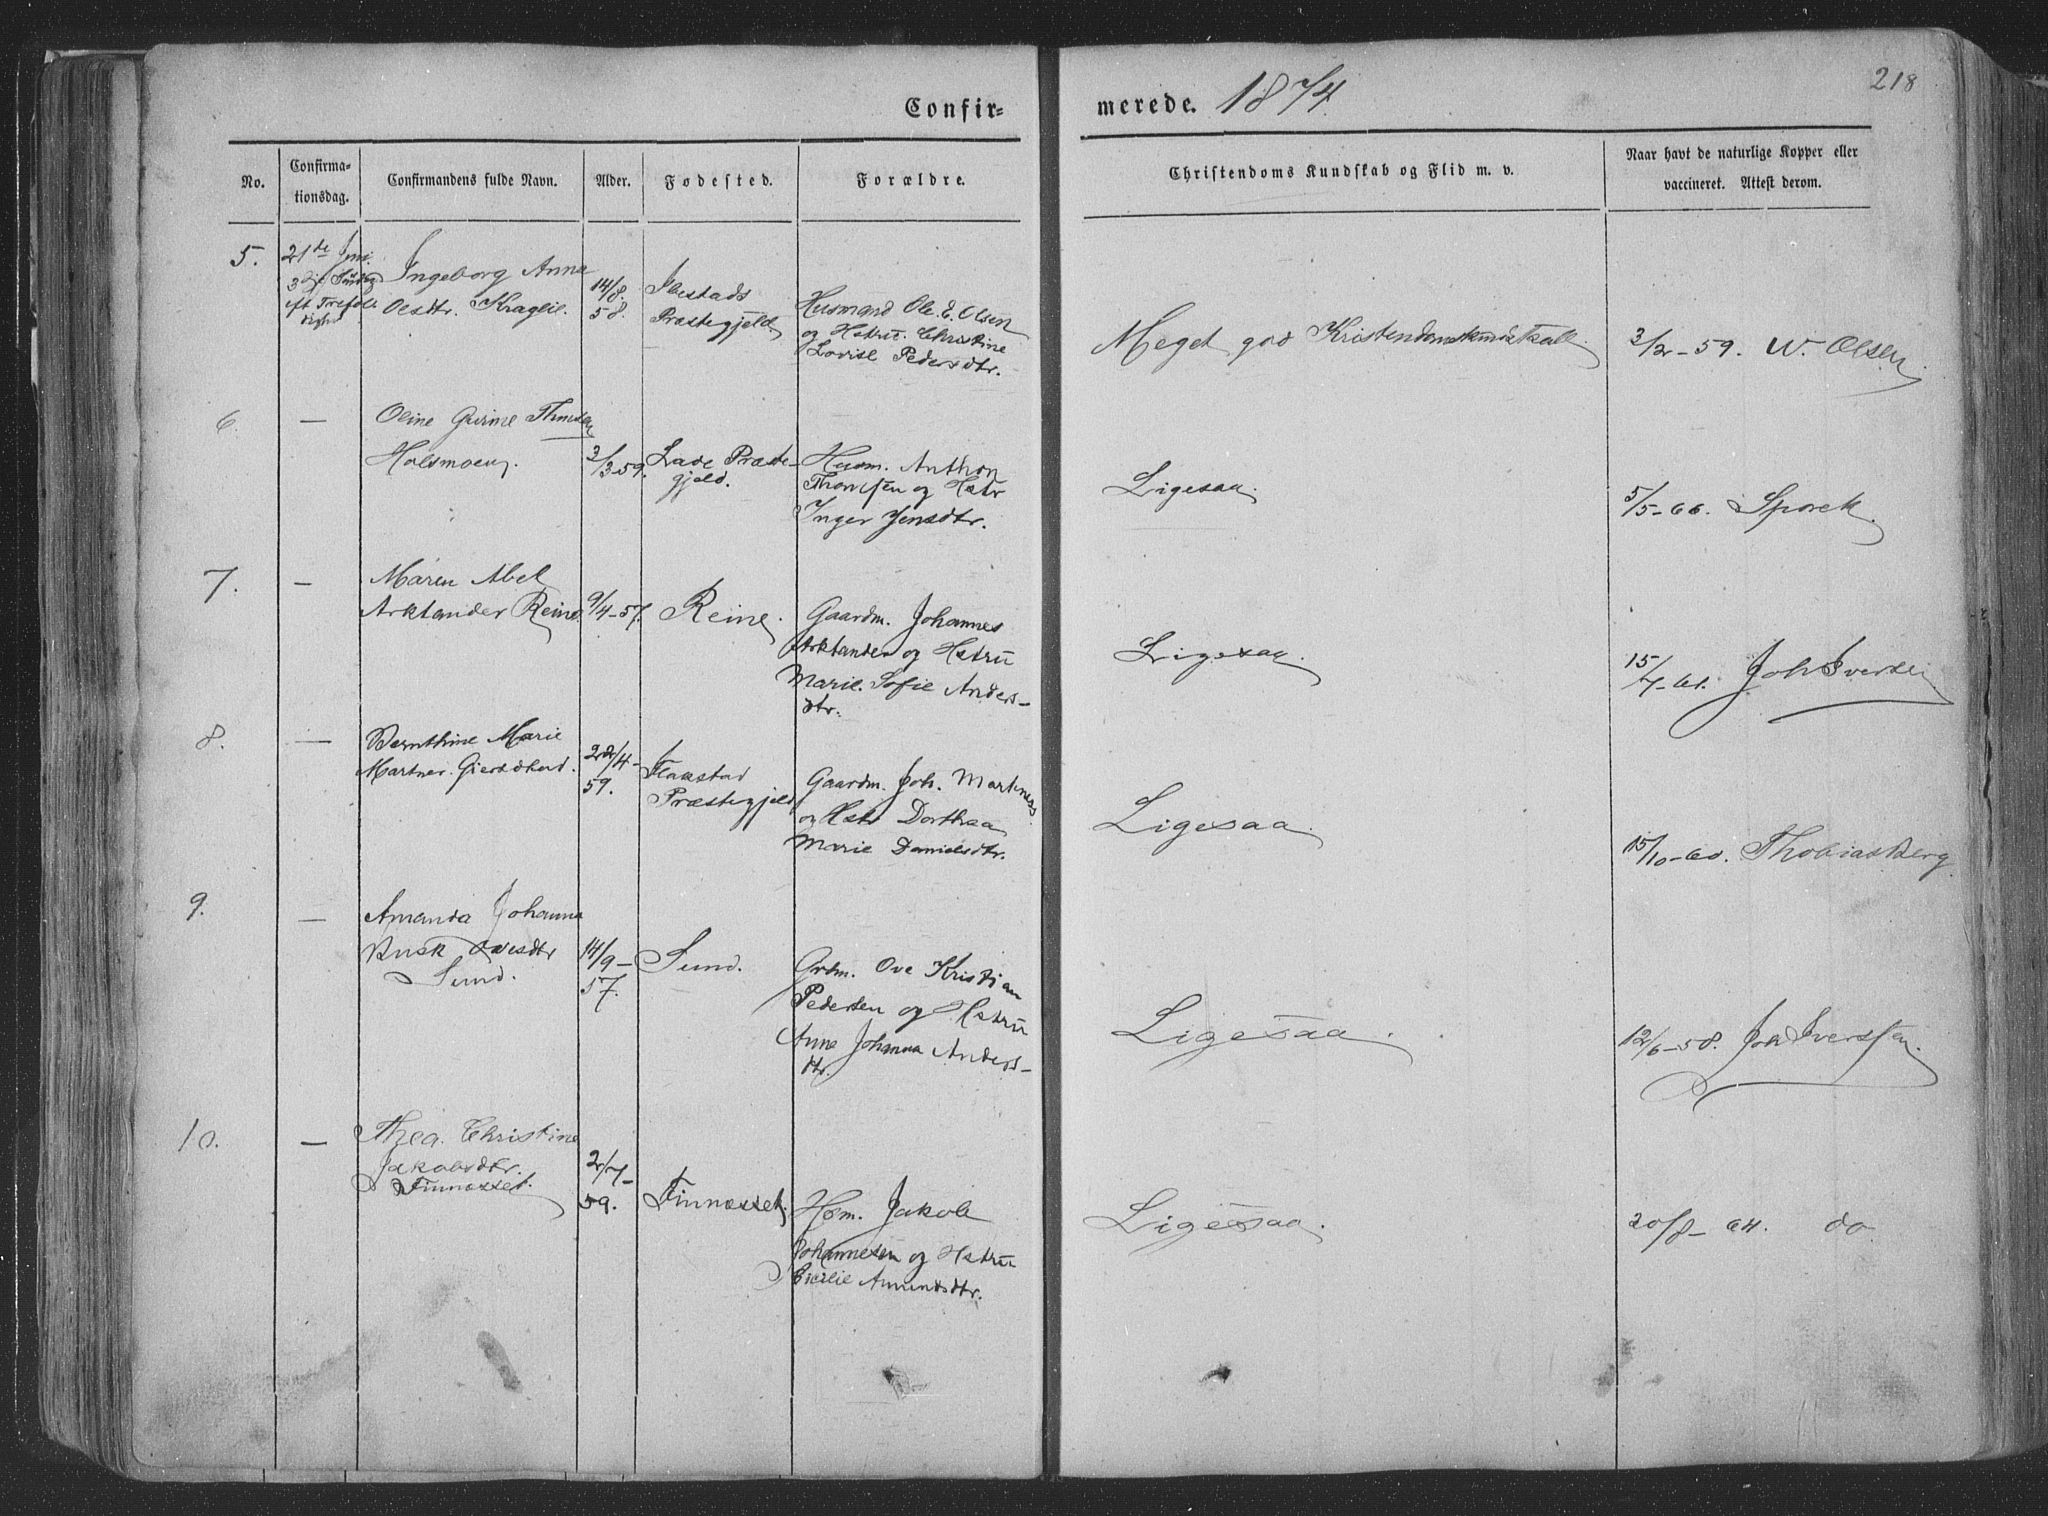 Confir=
merede. 1874.
218
No.
Confirma-
tionsdag.
Confirmandens fulde Navn.
Alder.
Fødested.
Forældre.
Christendoms Kundskab og Flid m. v.
Naar havt de naturlige Kopper eller
vaccineret. Attest derom.
5.
21de Juni
3die Søndag
eft Trefol-
dighed
Ingeborg Anna
Olsdtr.
14/8.
58.
Ibestads
Præstegjeld
Husmand Ole E. Olsen
og Hstrū. Christine
Lovise Pedersdtr.
Meget god Kristendomskundskab.
3/2-59. W. Olsen
6.
—
Oline Gurine
Holsmoen.
3/3-59.
Lade Præste-
gjeld.
Husm. Anthon
Thomsen og Hstr
Inger Jensdtr.
Ligesaa.
5/5-66. Sporck.
7.
—
Maren Abel
Arktander Reine.
9/4-57.
Reine.
Gaardm. Johannes
Arktander og Hstrū
Marie Sofie Anders-
dtr.
Ligesaa.
15/7-61. Joh Iversen
8.
—
Bernthine Marie
22/4-
59.
Flakstad
Præstegjeld
Gaardm. Joh. Martines
og Hstr Dorthea
Marie Danielsdtr.
Ligesaa.
15/10-60. Thobias Berg
9.
—
Amanda Johanna
Busk Ovesdtr
Sund.
14/9-
57.
Sund.
Grdm. Ove Kristian
Pedersen og Hstrū
Anne Johanna Anders-
dtr.
Ligesaa.
12/6-58. Joh Iversen.
10.
—
Thea Christine
Jakobsdtr.
Finnæsset.
2/7-
59.
Finnæsset.
Hsm. Jakob
Johannesen og Hstrū
Cicilie Amundsdtr.
Ligesaa.
20/8-64. do.